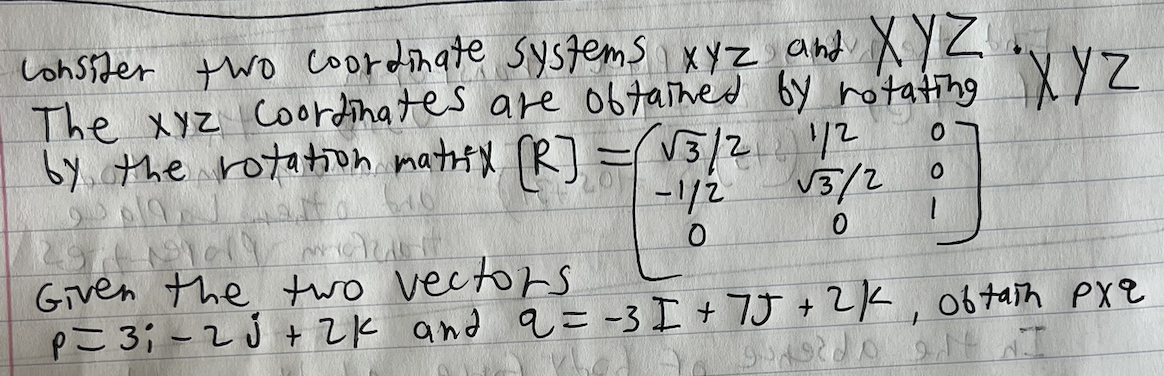 Consider two coordinate systems xyz and XYZ.
The xyz coordinates are obtained by rotating XYZ
by the rotation matrix [R] = [√3/2 1/2 0
-1/2 √3/2 0
0 0 1]
Given the two vectors
p = 3i - 2j + 2k and q = -3I + 7J + 2K, obtain p x q